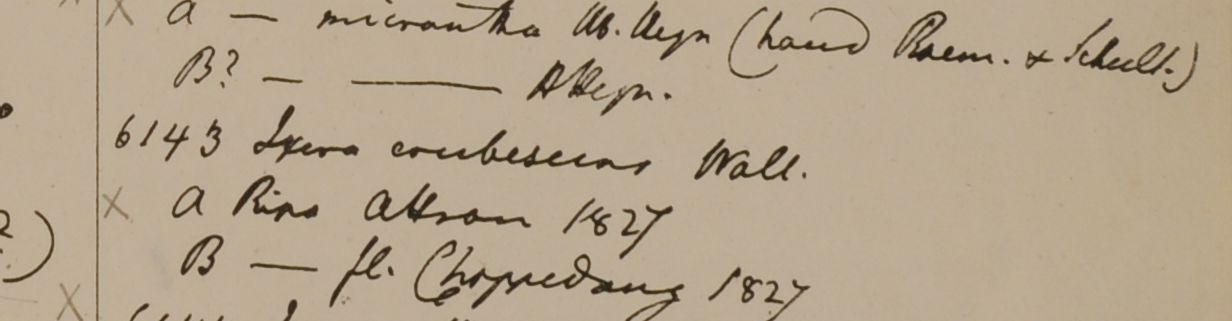 X a — micrantha Hb. Heyn (haud Roem. & Schult.)
B? — ——— HHeyn.
6143 Ixora erubescens Wall.
X a Ripa Attran 1827
B — fl. Choppedong 1827
X